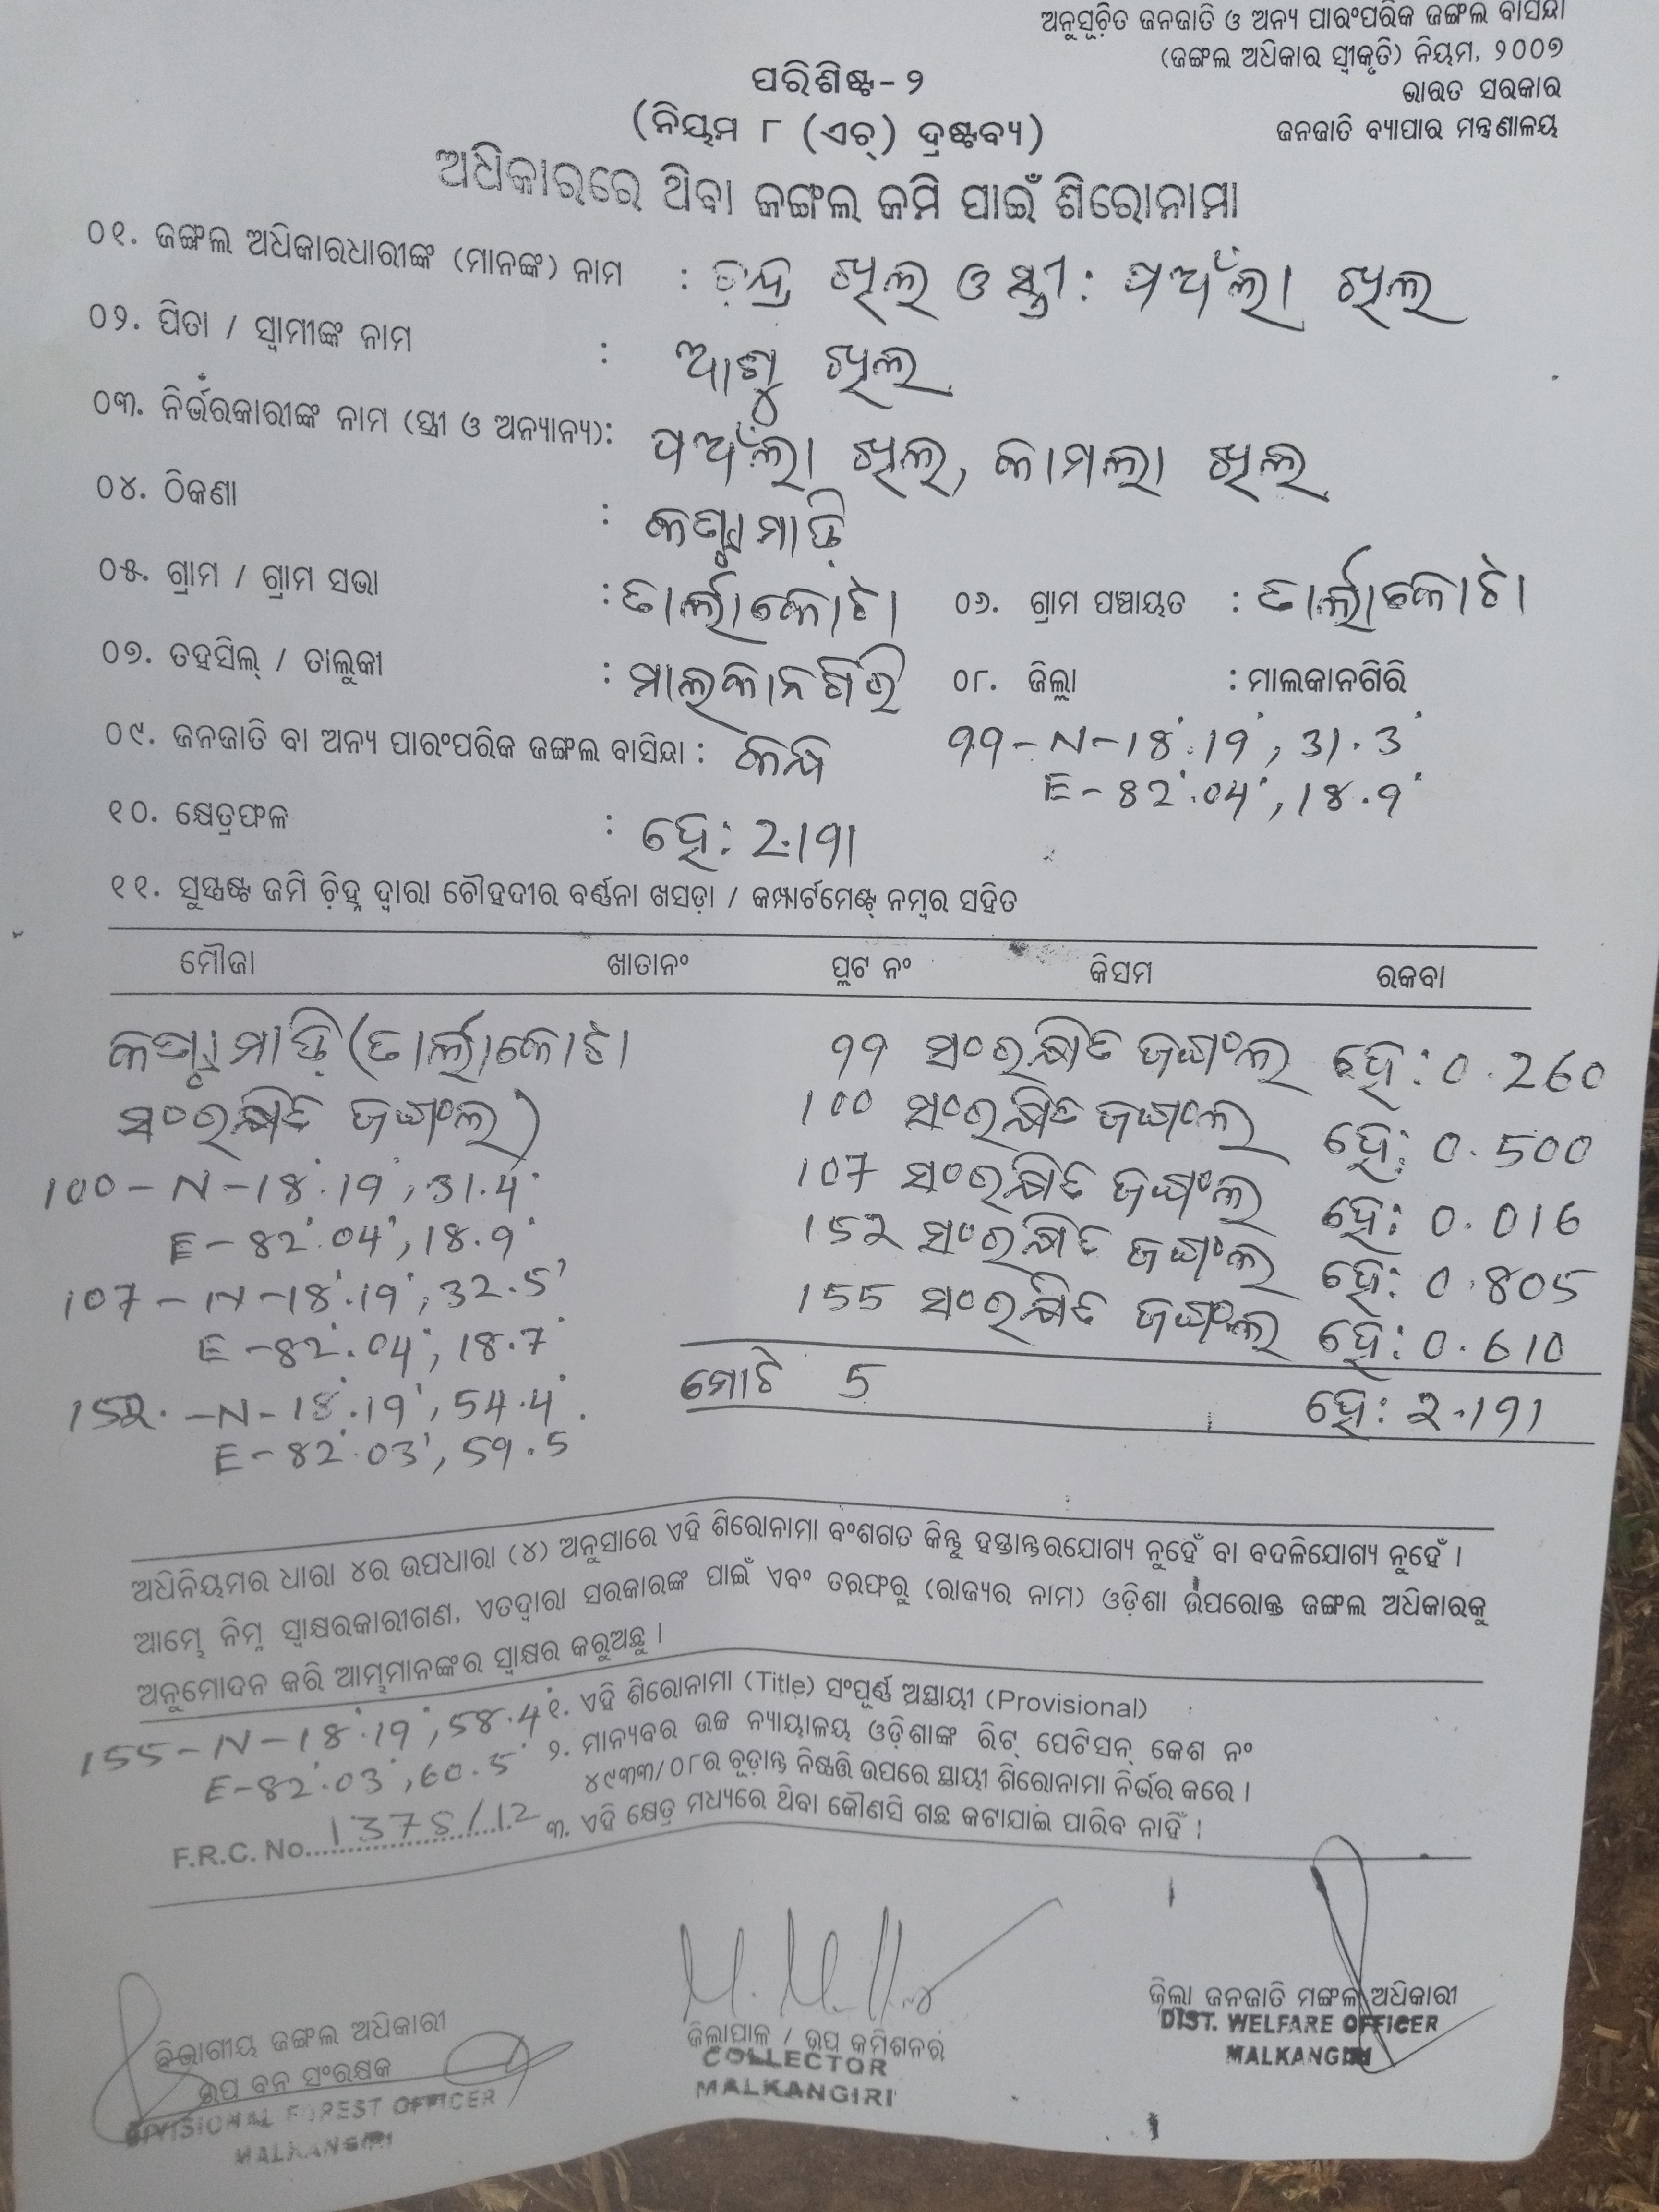 ଅନୁସୂଚିତ ଜନଜାତି ଓ ଅନ୍ୟ ପାରଂପରିକ ଜଙ୍ଗଲ ବାସିନ୍ଦା
(ଜଙ୍ଗଲ ଅଧିକାର ସ୍ୱୀକୃତି) ନିୟମ, ୨୦୦୭
ଭାରତ ସରକାର
ଜନଜାତି ବ୍ୟାପାର ମନ୍ତ୍ରଣାଳୟ
ପରିଶିଷ୍ଟ-୨
(ନିୟମ ୮ (ଏଚ୍) ଦ୍ରଷ୍ଟବ୍ୟ)
ଅଧିକାରରେ ଥିବା ଜଙ୍ଗଲ ଜମି ପାଇଁ ଶିରୋନାମା
୦୧. ଜଙ୍ଗଲ ଅଧିକାରଧାରୀଙ୍କ (ମାନଙ୍କ) ନାମ : ଚନ୍ଦ୍ର ଖିଲ ଓ ସ୍ତ୍ରୀ: ଖିଲ
୦୨. ପିତା / ସ୍ୱାମୀଙ୍କ ନାମ : ଆଶୁ ଖିଲ
୦୩. ନିର୍ଭରକାରୀଙ୍କ ନାମ (ସ୍ତ୍ରୀ ଓ ଅନ୍ୟାନ୍ୟ): ଖିଲ, କାମଲା ଖିଲ
୦୪. ଠିକଣା :
୦୫. ଗ୍ରାମ / ଗ୍ରାମ ସଭା : ତାର୍ଲାକୋଟା ୦୬. ଗ୍ରାମ ପଞ୍ଚାୟତ : ତାର୍ଲାକୋଟା
୦୭. ତହସିଲ୍ / ତାଲୁକା : ମାଲକାନଗିରି ୦୮. ଜିଲ୍ଲା : ମାଲକାନଗିରି
୦୯. ଜନଜାତି ବା ଅନ୍ୟ ପାରଂପରିକ ଜଙ୍ଗଲ ବାସିନ୍ଦା : 99-N-18°.19', 31.3"
E-82°.04', 18.9"
୧୦. କ୍ଷେତ୍ରଫଳ : ହେ: 2.191
୧୧. ସୁସ୍ପଷ୍ଟ ଜମି ଚିହ୍ନ ଦ୍ୱାରା ଚୌହଦୀର ବର୍ଣ୍ଣନା ଖସଡ଼ା / କମ୍ପାର୍ଟମେଣ୍ଟ୍ ନମ୍ବର ସହିତ
ମୌଜା ଖାତାନଂ ପ୍ଲଟ ନଂ କିସମ ରକବା
(ତାର୍ଲାକୋଟା 99 ସଂରକ୍ଷିତ ଜଙ୍ଗଲ ହେ: 0.260
ସଂରକ୍ଷିତ ଜଙ୍ଗଲ) 100 ସଂରକ୍ଷିତ ଜଙ୍ଗଲ ହେ: 0.500
100-N-18°.19', 31.4" 107 ସଂରକ୍ଷିତ ଜଙ୍ଗଲ ହେ: 0.016
E-82°.04', 18.9" 152 ସଂରକ୍ଷିତ ଜଙ୍ଗଲ ହେ: 0.805
107-N-18°.19', 32.5" 155 ସଂରକ୍ଷିତ ଜଙ୍ଗଲ ହେ: 0.610
E-82°.04', 18.7" ମୋଟ 5 ହେ: 2.191
152.-N-18°.19', 54.4"
E-82°.03', 59.5
ଅଧିନିୟମର ଧାରା ୪ର ଉପଧାରା (୪) ଅନୁସାରେ ଏହି ଶିରୋନାମା ବଂଶଗତ କିନ୍ତୁ ହସ୍ତାନ୍ତରଯୋଗ୍ୟ ନୁହେଁ ବା ବଦଳିଯୋଗ୍ୟ ନୁହେଁ ।
ଆମ୍ଭେ ନିମ୍ନ ସ୍ୱାକ୍ଷରକାରୀଗଣ, ଏତଦ୍ୱାରା ସରକାରଙ୍କ ପାଇଁ ଏବଂ ତରଫରୁ (ରାଜ୍ୟର ନାମ) ଓଡ଼ିଶା ଉପରୋକ୍ତ ଜଙ୍ଗଲ ଅଧିକାରକୁ
ଅନୁମୋଦନ କରି ଆମ୍ଭମାନଙ୍କର ସ୍ୱାକ୍ଷର କରୁଅଛୁ ।
155-N-18°.19', 58.4" ୧. ଏହି ଶିରୋନାମା (Title) ସଂପୂର୍ଣ୍ଣ ଅସ୍ଥାୟୀ (Provisional)
E-82°.03', 60.5" ୨. ମାନ୍ୟବର ଉଚ୍ଚ ନ୍ୟାୟାଳୟ ଓଡ଼ିଶାଙ୍କ ରିଟ୍ ପେଟିସନ୍ କେଶ ନଂ
୪୯୩୩/୦୮ର ଚୂଡ଼ାନ୍ତ ନିଷ୍ପତ୍ତି ଉପରେ ସ୍ଥାୟୀ ଶିରୋନାମା ନିର୍ଭର କରେ ।
F.R.C. No. 1378/12 ୩. ଏହି କ୍ଷେତ୍ର ମଧ୍ୟରେ ଥିବା କୌଣସି ଗଛ କଟାଯାଇ ପାରିବ ନାହିଁ ।
ବିଭାଗୀୟ ଜଙ୍ଗଲ ଅଧିକାରୀ
ଉପ ବନ ସଂରକ୍ଷକ
DIVISIONAL FOREST OFFICER
MALKANGIRI
ଜିଲାପାଳ / ଉପ କମିଶନର
COLLECTOR
MALKANGIRI
ଜିଲା ଜନଜାତି ମଙ୍ଗଳ ଅଧିକାରୀ
DIST. WELFARE OFFICER
MALKANGIRI